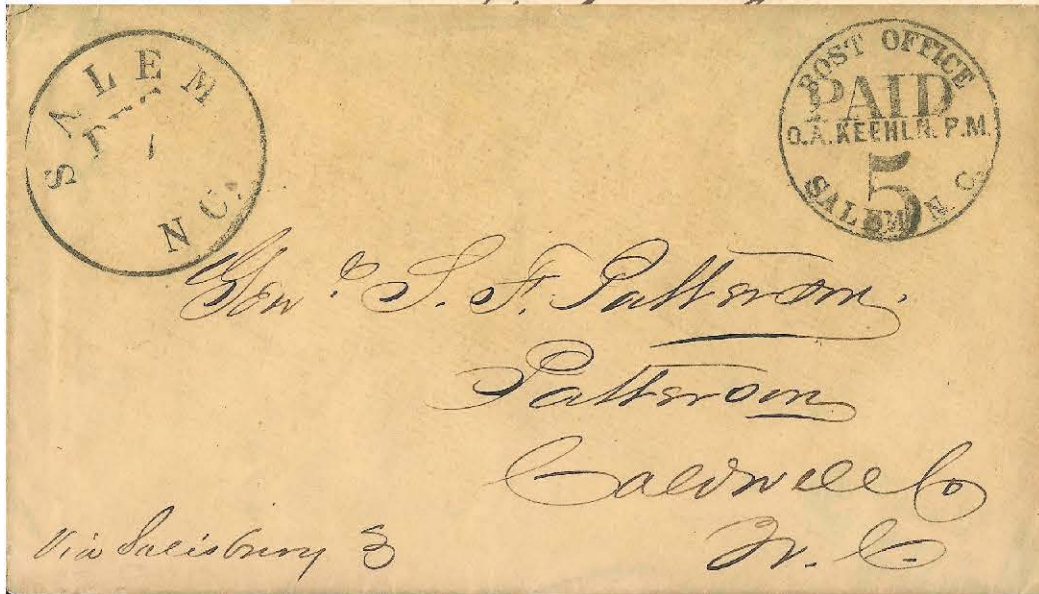 SALEM
DEC
1
N.C.
POST OFFICE
PAID
O.A. KEEHLN. P.M.
5
SALEM N.C.
Genl. S. F. Patterson.
Patterson
Caldwell Co
N. C.
Via Salisbury